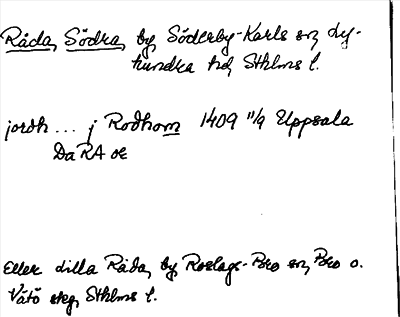 Råda, Södra, by, Söderby-Karls sn, Ly-
hundra hd, Sthlms l.
jordh ... j Rodhom 1409 11/9 Uppsala
DaRA oe
Eller lilla Råda, by, Roslags-Bro sn, Bro o.
Vätö skg, Sthlms l.